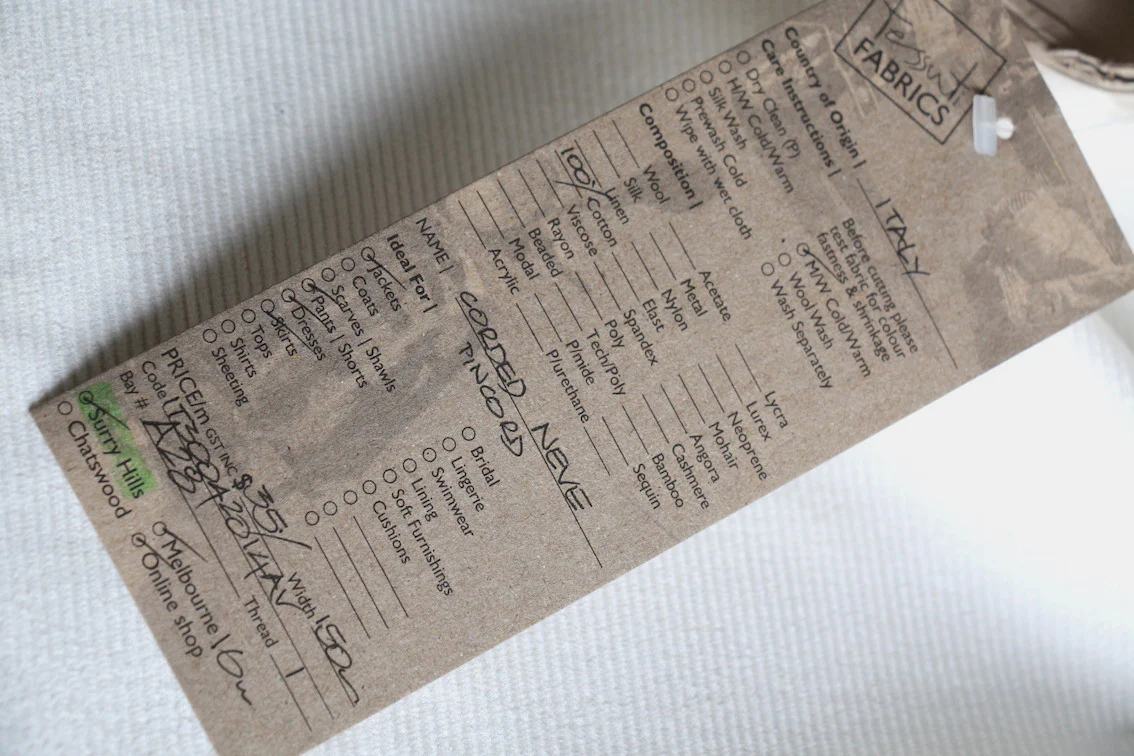 Tessuti
FABRICS
Country of Origin | ITALY
Care Instructions |
Before cutting please
test fabric for colour
fastness & shrinkage
Dry Clean (P)
H/W Cold/Warm
Silk Wash
Prewash Cold
Wipe with wet cloth
M/W Cold/Warm
Wool Wash
Wash Separately
Composition |
Wool
Silk
Linen
100% Cotton
Viscose
Rayon
Beaded
Modal
Acrylic
Acetate
Metal
Nylon
Elast
Spandex
Poly
Tech/Poly
P/mide
P/urethane
Lycra
Lurex
Neoprene
Mohair
Angora
Cashmere
Bamboo
Sequin
NAME | CORDED NEVE
PINCORD
Ideal For |
Jackets
Coats
Scarves | Shawls
Pants | Shorts
Dresses
Skirts
Tops
Shirts
Sheeting
Bridal
Lingerie
Swimwear
Lining
Soft Furnishings
Cushions
PRICE/m GST INC $35/ Width 150
Code
Bay # Thread 1
Surry Hills
Chatswood
Melbourne 16
Online shop